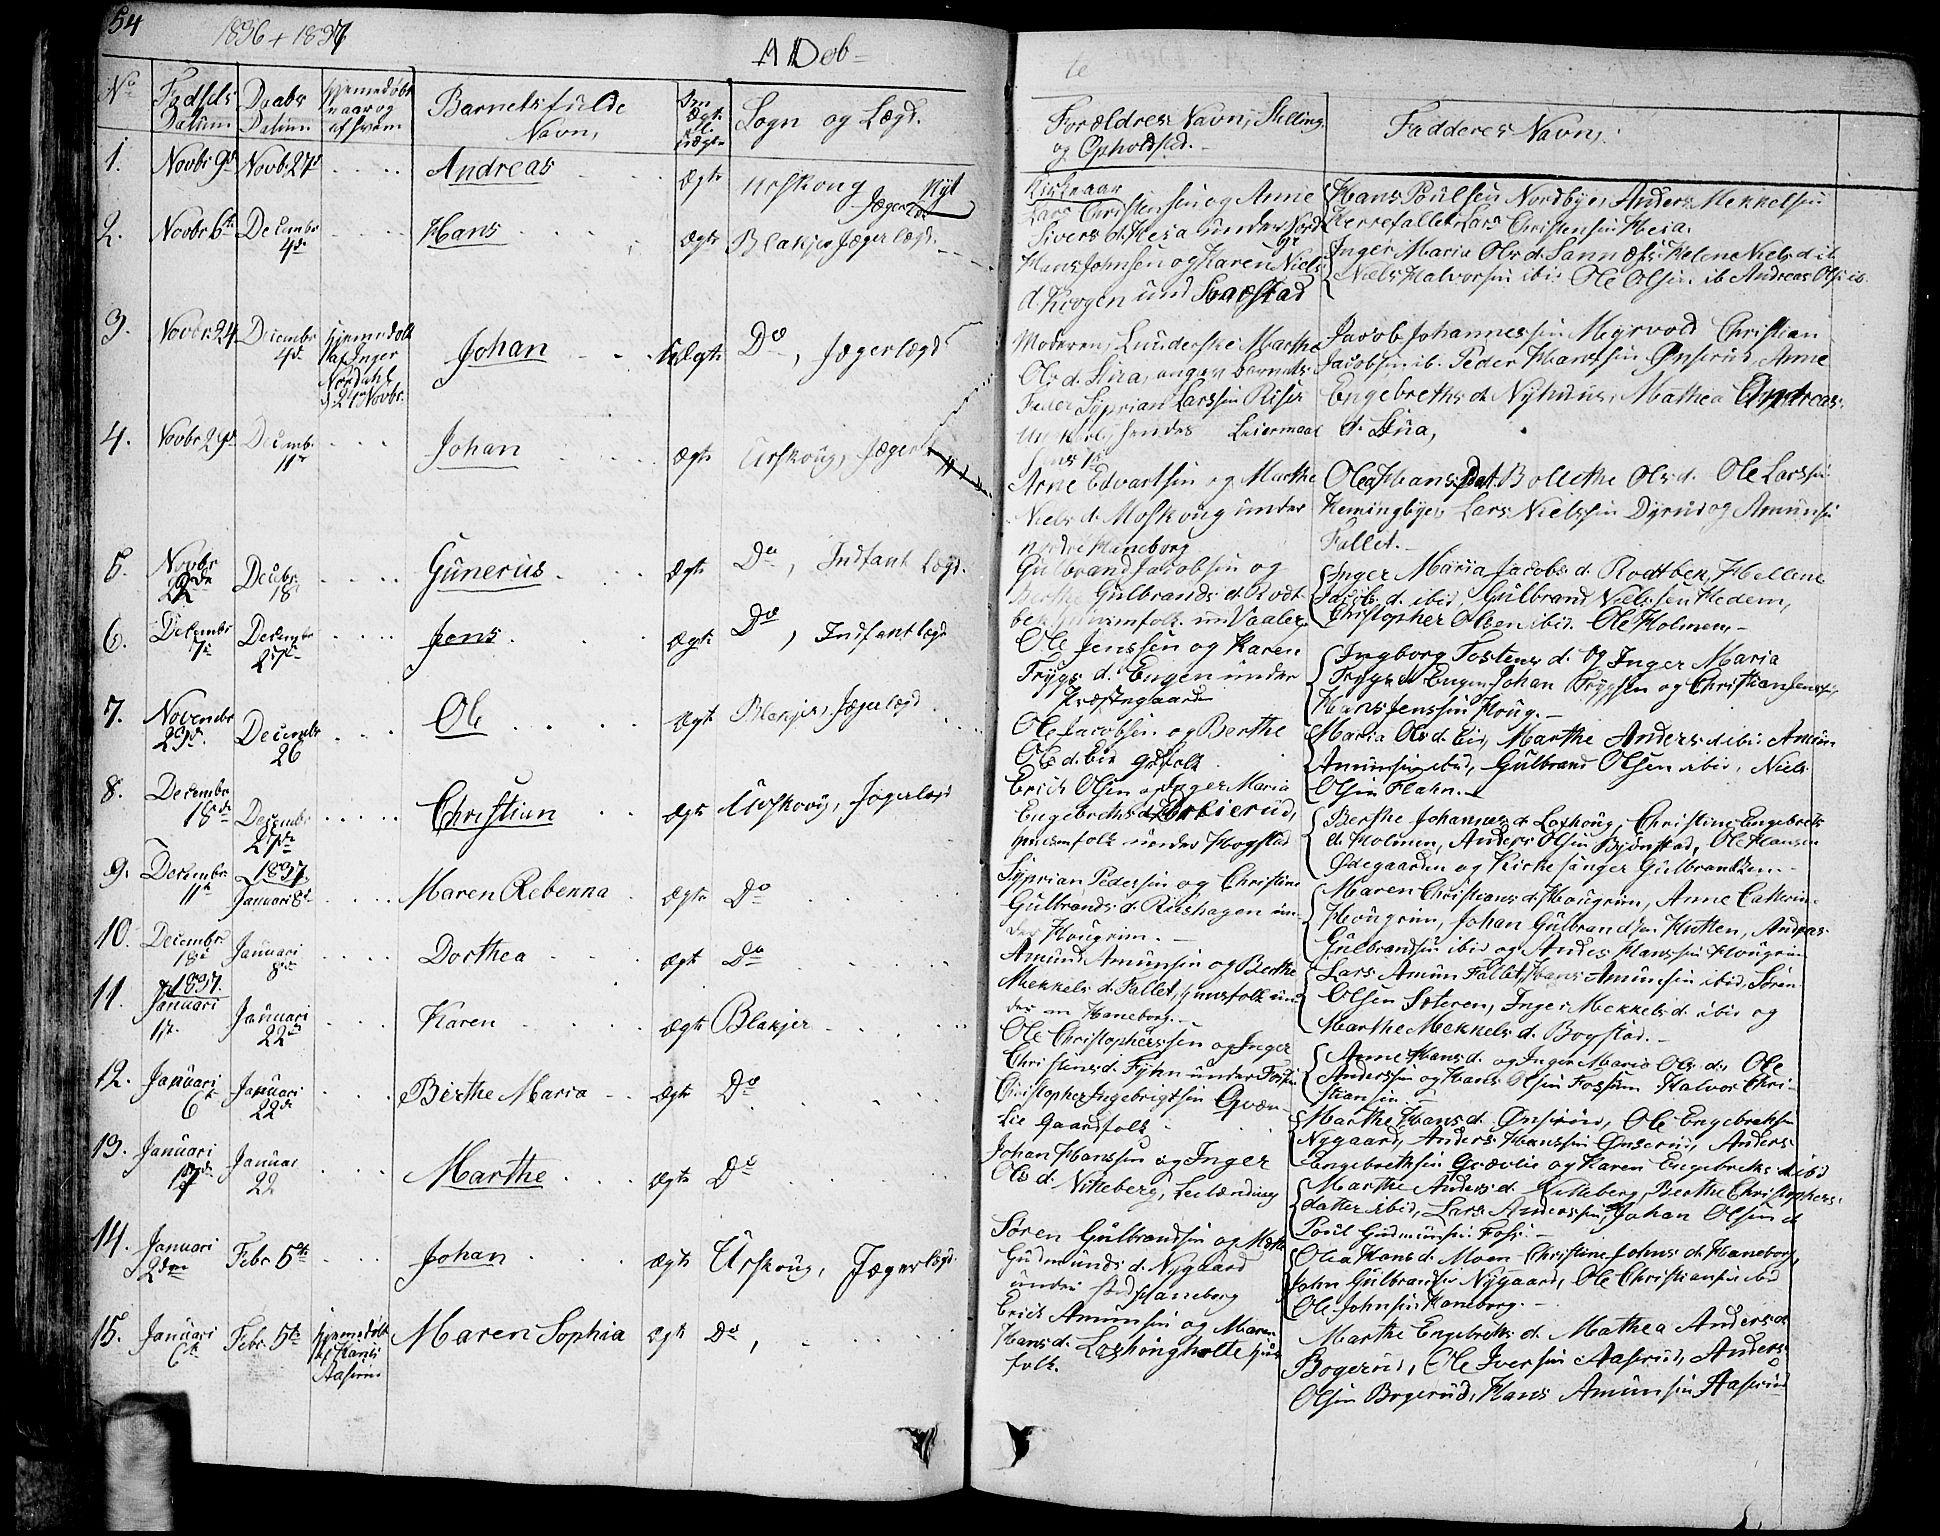 54
1836 + 1837
A Døb-
te
No
Fødsels Datum
Daabs Datum
hjemedøbt naar og af hvem
Barnets fulde Navn,
Om Ægt. el. uægte
Sogn og Lægd.
Forældres Navn, Stilling og Opholdsted.
Faddernes Navn,
1. Novbr 9de Novbr 27de Andreas ægte Urskoug Jægerlæ
Kirkeaar
Lars Christensen og Anne
Sivers d. Heia under Nord
Hans Poulsen Nordbye, Anders Mekkelsen
Herrefallet Lars Christensen Heia.
2. Novbr 6te Decembr 4de Hans ægte Blakjer Jægerlægd.
Hans Johnsen og Karen Niels
d. Krogen und
Inger Maria Ols d. Helene Niels d. ib
Niels Halvorsen ibid. Ole Olsen ib. Andreas Ols. ib.
3. Novbr. 24 Decembr 4de hjemedøbt af Inger Nordahl d. 27 Novbr. Johan Uægte Do, Jægerlægd
Moderen, Marthe
Ols d. Lua, angen barnets
Fader Syprian Larssen Riser
Leiermaal
Jacob Johannessen Myrvold Christian
Jacobsen ib. Peder Hanssen Ønserud, Anne
Engebreths d. Mathea Andreas
d. Lua,
4. Novbr 29de Decembr 11te Johan ægte Urskoug, Jægerl
Arne Edvartsen og Marthe
Niels d. Moskoug under
nordre Haneborg
Ole Hans Bollethe Ols d. Ole Larssen
Hemingbye, Lars Nielssen Dyrud og Amunsen
Fallet.-
5. Novbr 22de Decbr. 18 Gunerus ægte Do, Infant Lægd.
Gulbrand Jacobsen og
Berthe Gulbrands d. Rodt
bek, und Vaaler
Inger Maria Jacobs d. Rodtbek, Hellene
Jacobs d. ibid Gulbrand Nielssen Hedem,
Christopher Olsen ibid. Ole Holmen,-
6. Decembr 7de Decembr 27de Jens ægte Do, Infantlægd
Ole Jenssen og Karen
Trygs d. Engen under
Præstegaarden
Ingborg Tostens d. og Inger Maria
Trygs d. Engen, Johan Trygsen og Christian Jenssen
Hans Jenssen Houg.-
7. Novembr 29de Decembr 26 Ole ægte Blakjer, Jægerlægd
Ole Jacobsen og Berthe
Ols d. Eid Grdfolk
Maria Ols d. Eid, Marthe Anders d. ibid Amun
Amunsen ibid, Gulbrand Olsen ibid, Niels
Olsen Flahn.-
8. Decembr 18de Decembr 27de Christian ægte Urskoug, Jægerlægd
Erich Olsen og Inger Maria
Engebreths d.
huusmfolk under Hogstad
Berthe Johannes d. Loshoug, Christine Engebrets
d. Holmen, Anders Olsen Bjønstad, Ole Hansen
Ødegaarden og Kirkesanger Gulbrandsen.-
9. Decembr 11te 1837 Januari 8de Maren Rebenna ægte Do
Syprian Pedersen og Christine
Gulbrands d. Riishagen un-
der Hougrim.-
Maren Christians d. Hougrim, Anne Cathrin.
Hougrim, Johan Gulbrandsen Hutten, Andreas
Gulbrandsen ibid og Andes Hanssen Hougrim
10. Decembr 18de Januari 8de Dorthea ægte Do
Amund Amunsen og Berthe
Mekkels d. Fallet, huusfolk un-
der Haneborg.-
Lars Amun Fallet, Hans Amunsen ibid, Søren
Olsen Soteren, Inger Mekkels d. ibid og
Marthe Mekkels d. Bogstad.-
11. 1837 Januari 1ste Januari 22de Karen ægte Blakjer
Ole Christopherssen og Inger
Christens d. Fyken under Fossum
Anne Hans d. og Inger Maria Ols d. Ole
Anderssen og Hans Olsen Fossum Halvor Chri-
stiansen.-
12. Januari 6te Januari 22de Birthe Maria ægte Do
Christopher Ingebrigtsen Qvæn-
lie Gaardfolk
Marthe Hans d. Ønserud, Ole Engebrethsen
Nygaard, Anders Hanssen Ønserud, Anders
Engebrethsen Qvævlie og Karen Engebreths d. ibid
13. Januari 17de Januar 22 Marthe ægte Do
Johan Hanssen og Inger
Ols d. Nitteberg, Leilænding
Marthe Anders d. Nitteberg, Berthe Christophers-
datter ibid, Lars Anderssen, Johan Olsen d
Poul Gudmunsen Foss.-
14. Januari 2den Febr 5te Johan ægte Urskoug, Jægerlægd.
Søren Gulbrandsen og
Gudmunds d. Nygaard
under Haneborg
Olea Hans d. Moen Christine Johns d. Haneborg,
John Gulbransen Nygaard, Ole Christiansen ibid
Ole Johnsen Haneborg.-
15. Januari 6te Febr 5te hjemedøbt af Hans Aaserud Maren Sophia ægte Do,
Erich Amunsen og Maren
Hans d. Loshougholte huus
folk.
Marthe Engebreths d. Mathea Anders d
Bogerud, Ole Iversen Aaserud, Anders
Olsen Bogerud, Hans Amunsen Aaserud